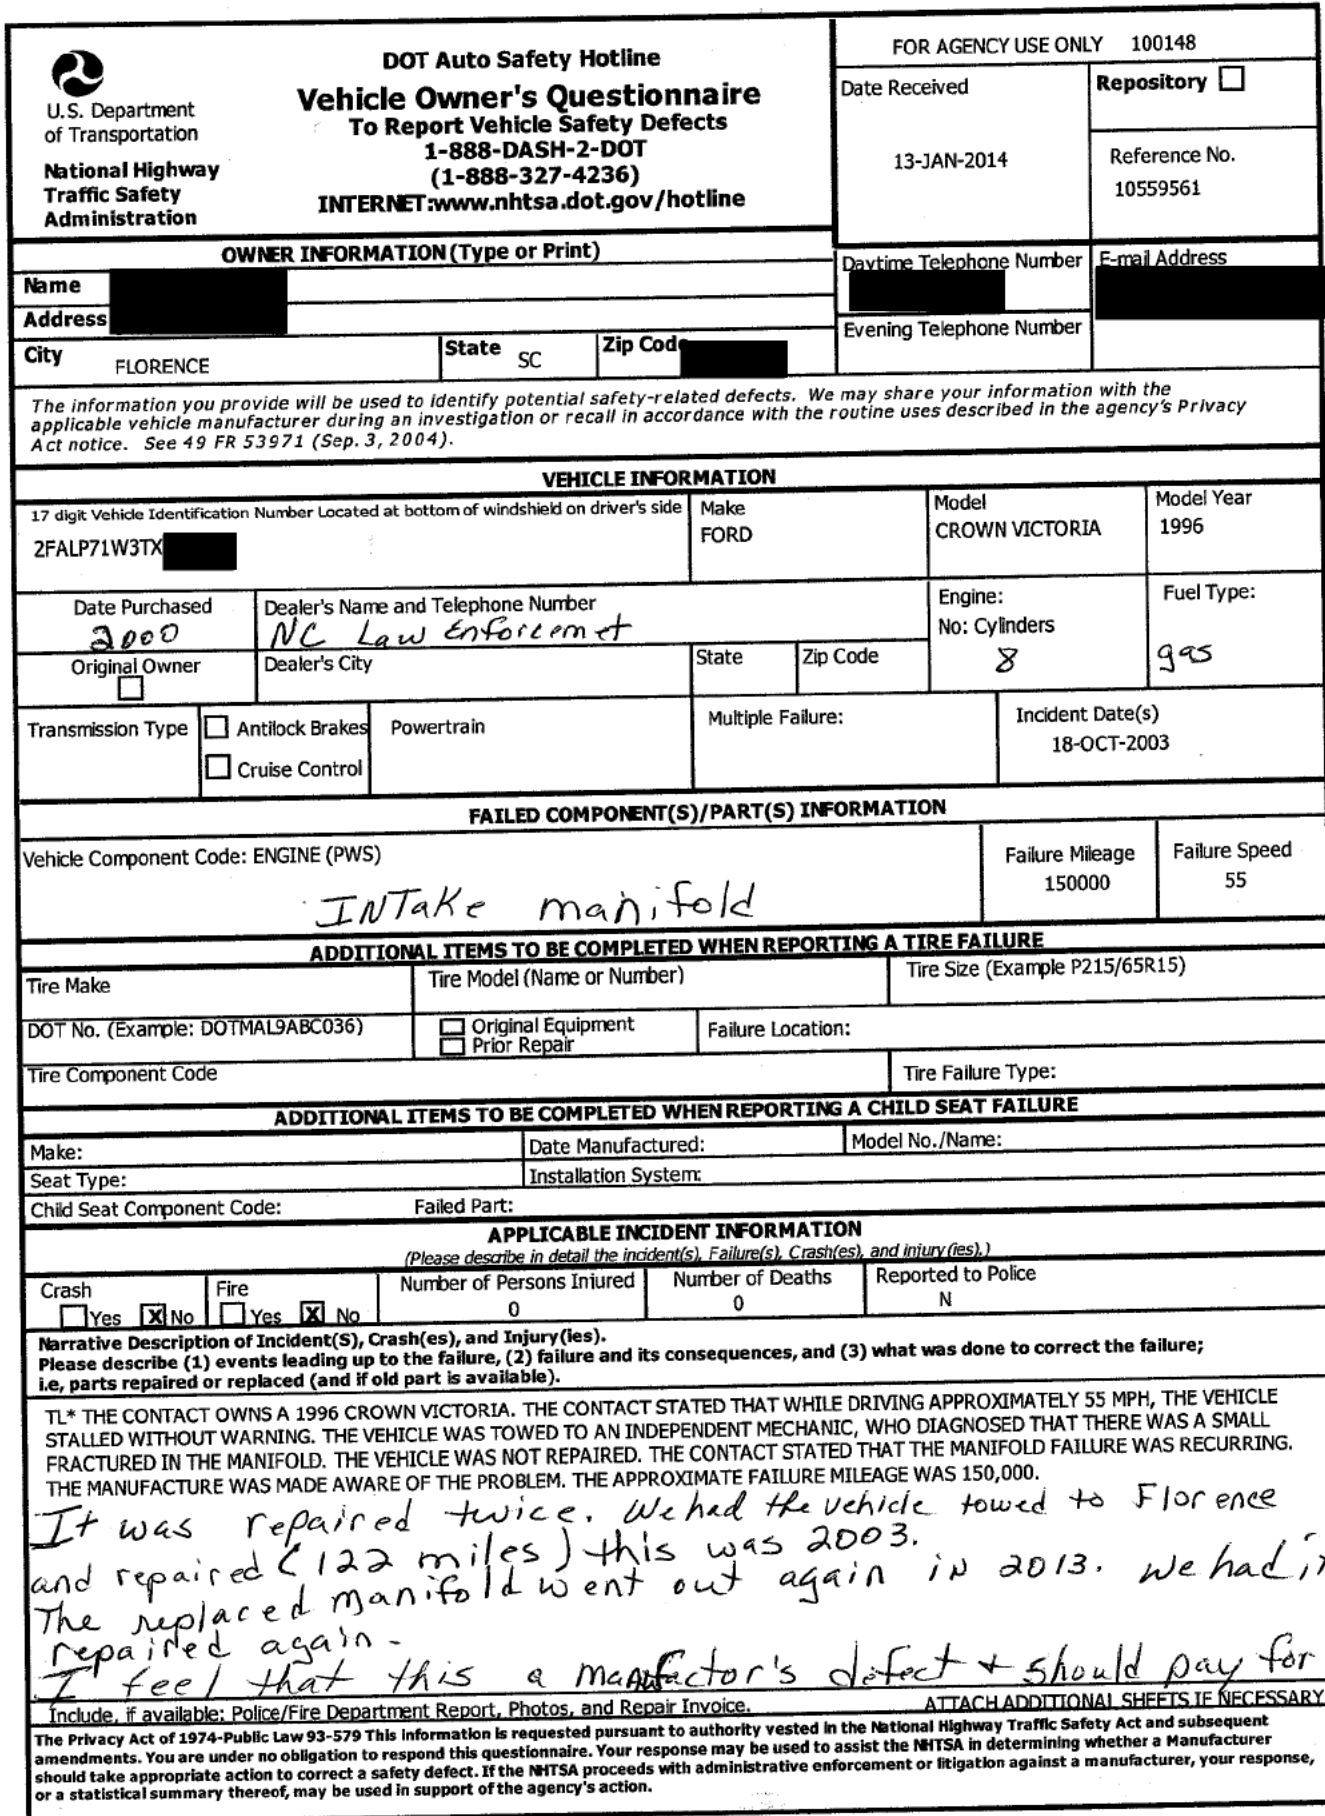 FOR AGENCY USE ONLY 100148
DOT Auto Safety Hotline
Vehicle Owner's Questionnaire
To Report Vehicle Safety Defects
1-888-DASH-2-DOT
(1-888-327-4236)
INTERNET:www.nhtsa.dot.gov/hotline
U.S. Department
of Transportation
National Highway
Traffic Safety
Administration
Date Received
13-JAN-2014
Repository
Reference No.
10559561
OWNER INFORMATION (Type or Print)
Name
Address
City FLORENCE State SC Zip Code
Daytime Telephone Number E-mail Address
Evening Telephone Number
The information you provide will be used to identify potential safety-related defects. We may share your information with the
applicable vehicle manufacturer during an investigation or recall in accordance with the routine uses described in the agency's Privacy
Act notice. See 49 FR 53971 (Sep. 3, 2004).
VEHICLE INFORMATION
17 digit Vehicle Identification Number Located at bottom of windshield on driver's side
2FALP71W3TX
Make
FORD
Model
CROWN VICTORIA
Model Year
1996
Date Purchased
2000
Dealer's Name and Telephone Number
NC Law Enforcemet
Engine:
No: Cylinders
8
Fuel Type:
gas
Original Owner
Dealer's City State Zip Code
Transmission Type Antilock Brakes Powertrain Multiple Failure: Incident Date(s)
18-OCT-2003
Cruise Control
FAILED COMPONENT(S)/PART(S) INFORMATION
Vehicle Component Code: ENGINE (PWS)
INTake manifold
Failure Mileage
150000
Failure Speed
55
ADDITIONAL ITEMS TO BE COMPLETED WHEN REPORTING A TIRE FAILURE
Tire Make Tire Model (Name or Number) Tire Size (Example P215/65R15)
DOT No. (Example: DOTMAL9ABC036) Original Equipment Failure Location:
Prior Repair
Tire Component Code Tire Failure Type:
ADDITIONAL ITEMS TO BE COMPLETED WHEN REPORTING A CHILD SEAT FAILURE
Make: Date Manufactured: Model No./Name:
Seat Type: Installation System:
Child Seat Component Code: Failed Part:
APPLICABLE INCIDENT INFORMATION
(Please describe in detail the incident(s), Failure(s), Crash(es), and injury(ies).)
Crash Fire Number of Persons Injured Number of Deaths Reported to Police
Yes X No Yes X No 0 0 N
Narrative Description of Incident(S), Crash(es), and Injury(ies).
Please describe (1) events leading up to the failure, (2) failure and its consequences, and (3) what was done to correct the failure;
i.e, parts repaired or replaced (and if old part is available).
TL* THE CONTACT OWNS A 1996 CROWN VICTORIA. THE CONTACT STATED THAT WHILE DRIVING APPROXIMATELY 55 MPH, THE VEHICLE
STALLED WITHOUT WARNING. THE VEHICLE WAS TOWED TO AN INDEPENDENT MECHANIC, WHO DIAGNOSED THAT THERE WAS A SMALL
FRACTURED IN THE MANIFOLD. THE VEHICLE WAS NOT REPAIRED. THE CONTACT STATED THAT THE MANIFOLD FAILURE WAS RECURRING.
THE MANUFACTURE WAS MADE AWARE OF THE PROBLEM. THE APPROXIMATE FAILURE MILEAGE WAS 150,000.
It was repaired twice. We had the vehicle towed to Florence
and repaired (122 miles) this was 2003.
The replaced manifold went out again in 2013. We had i
repaired again.
I feel that this a manufactor's defect + should pay for
Include, if available: Police/Fire Department Report, Photos, and Repair Invoice. ATTACH ADDITIONAL SHEETS IF NECESSARY
The Privacy Act of 1974-Public Law 93-579 This information is requested pursuant to authority vested in the National Highway Traffic Safety Act and subsequent
amendments. You are under no obligation to respond this questionnaire. Your response may be used to assist the NHTSA in determining whether a Manufacturer
should take appropriate action to correct a safety defect. If the NHTSA proceeds with administrative enforcement or litigation against a manufacturer, your response,
or a statistical summary thereof, may be used in support of the agency's action.